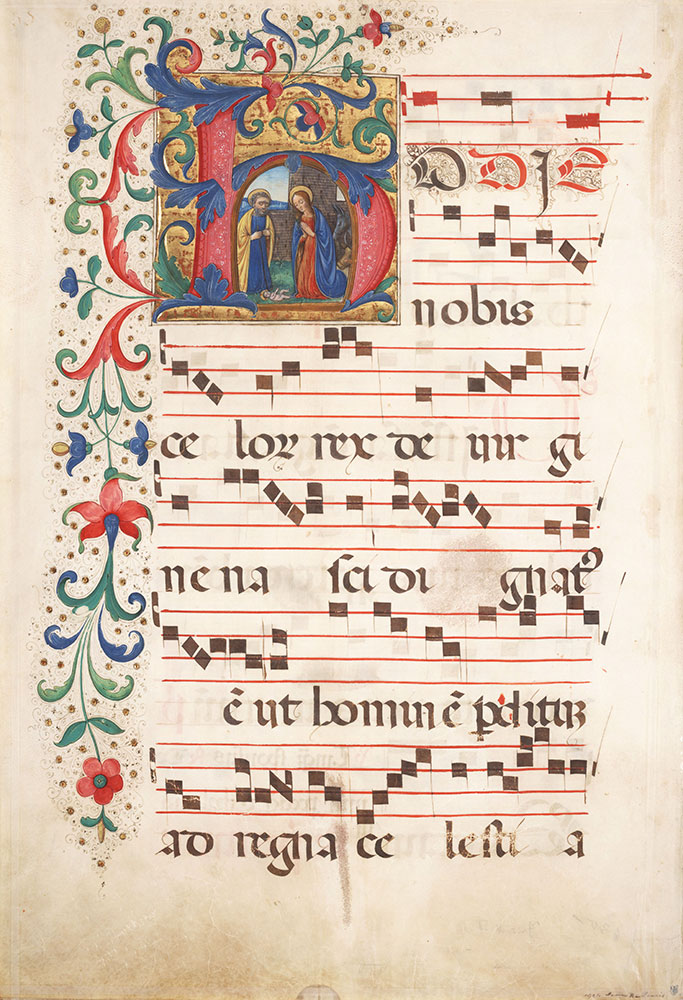 HODIE
nobis
ce loꝝ rex de uir gi
ne na sci di gnatꝰ
ē ut homin ē p̱ditū
ad regna ce lesti a